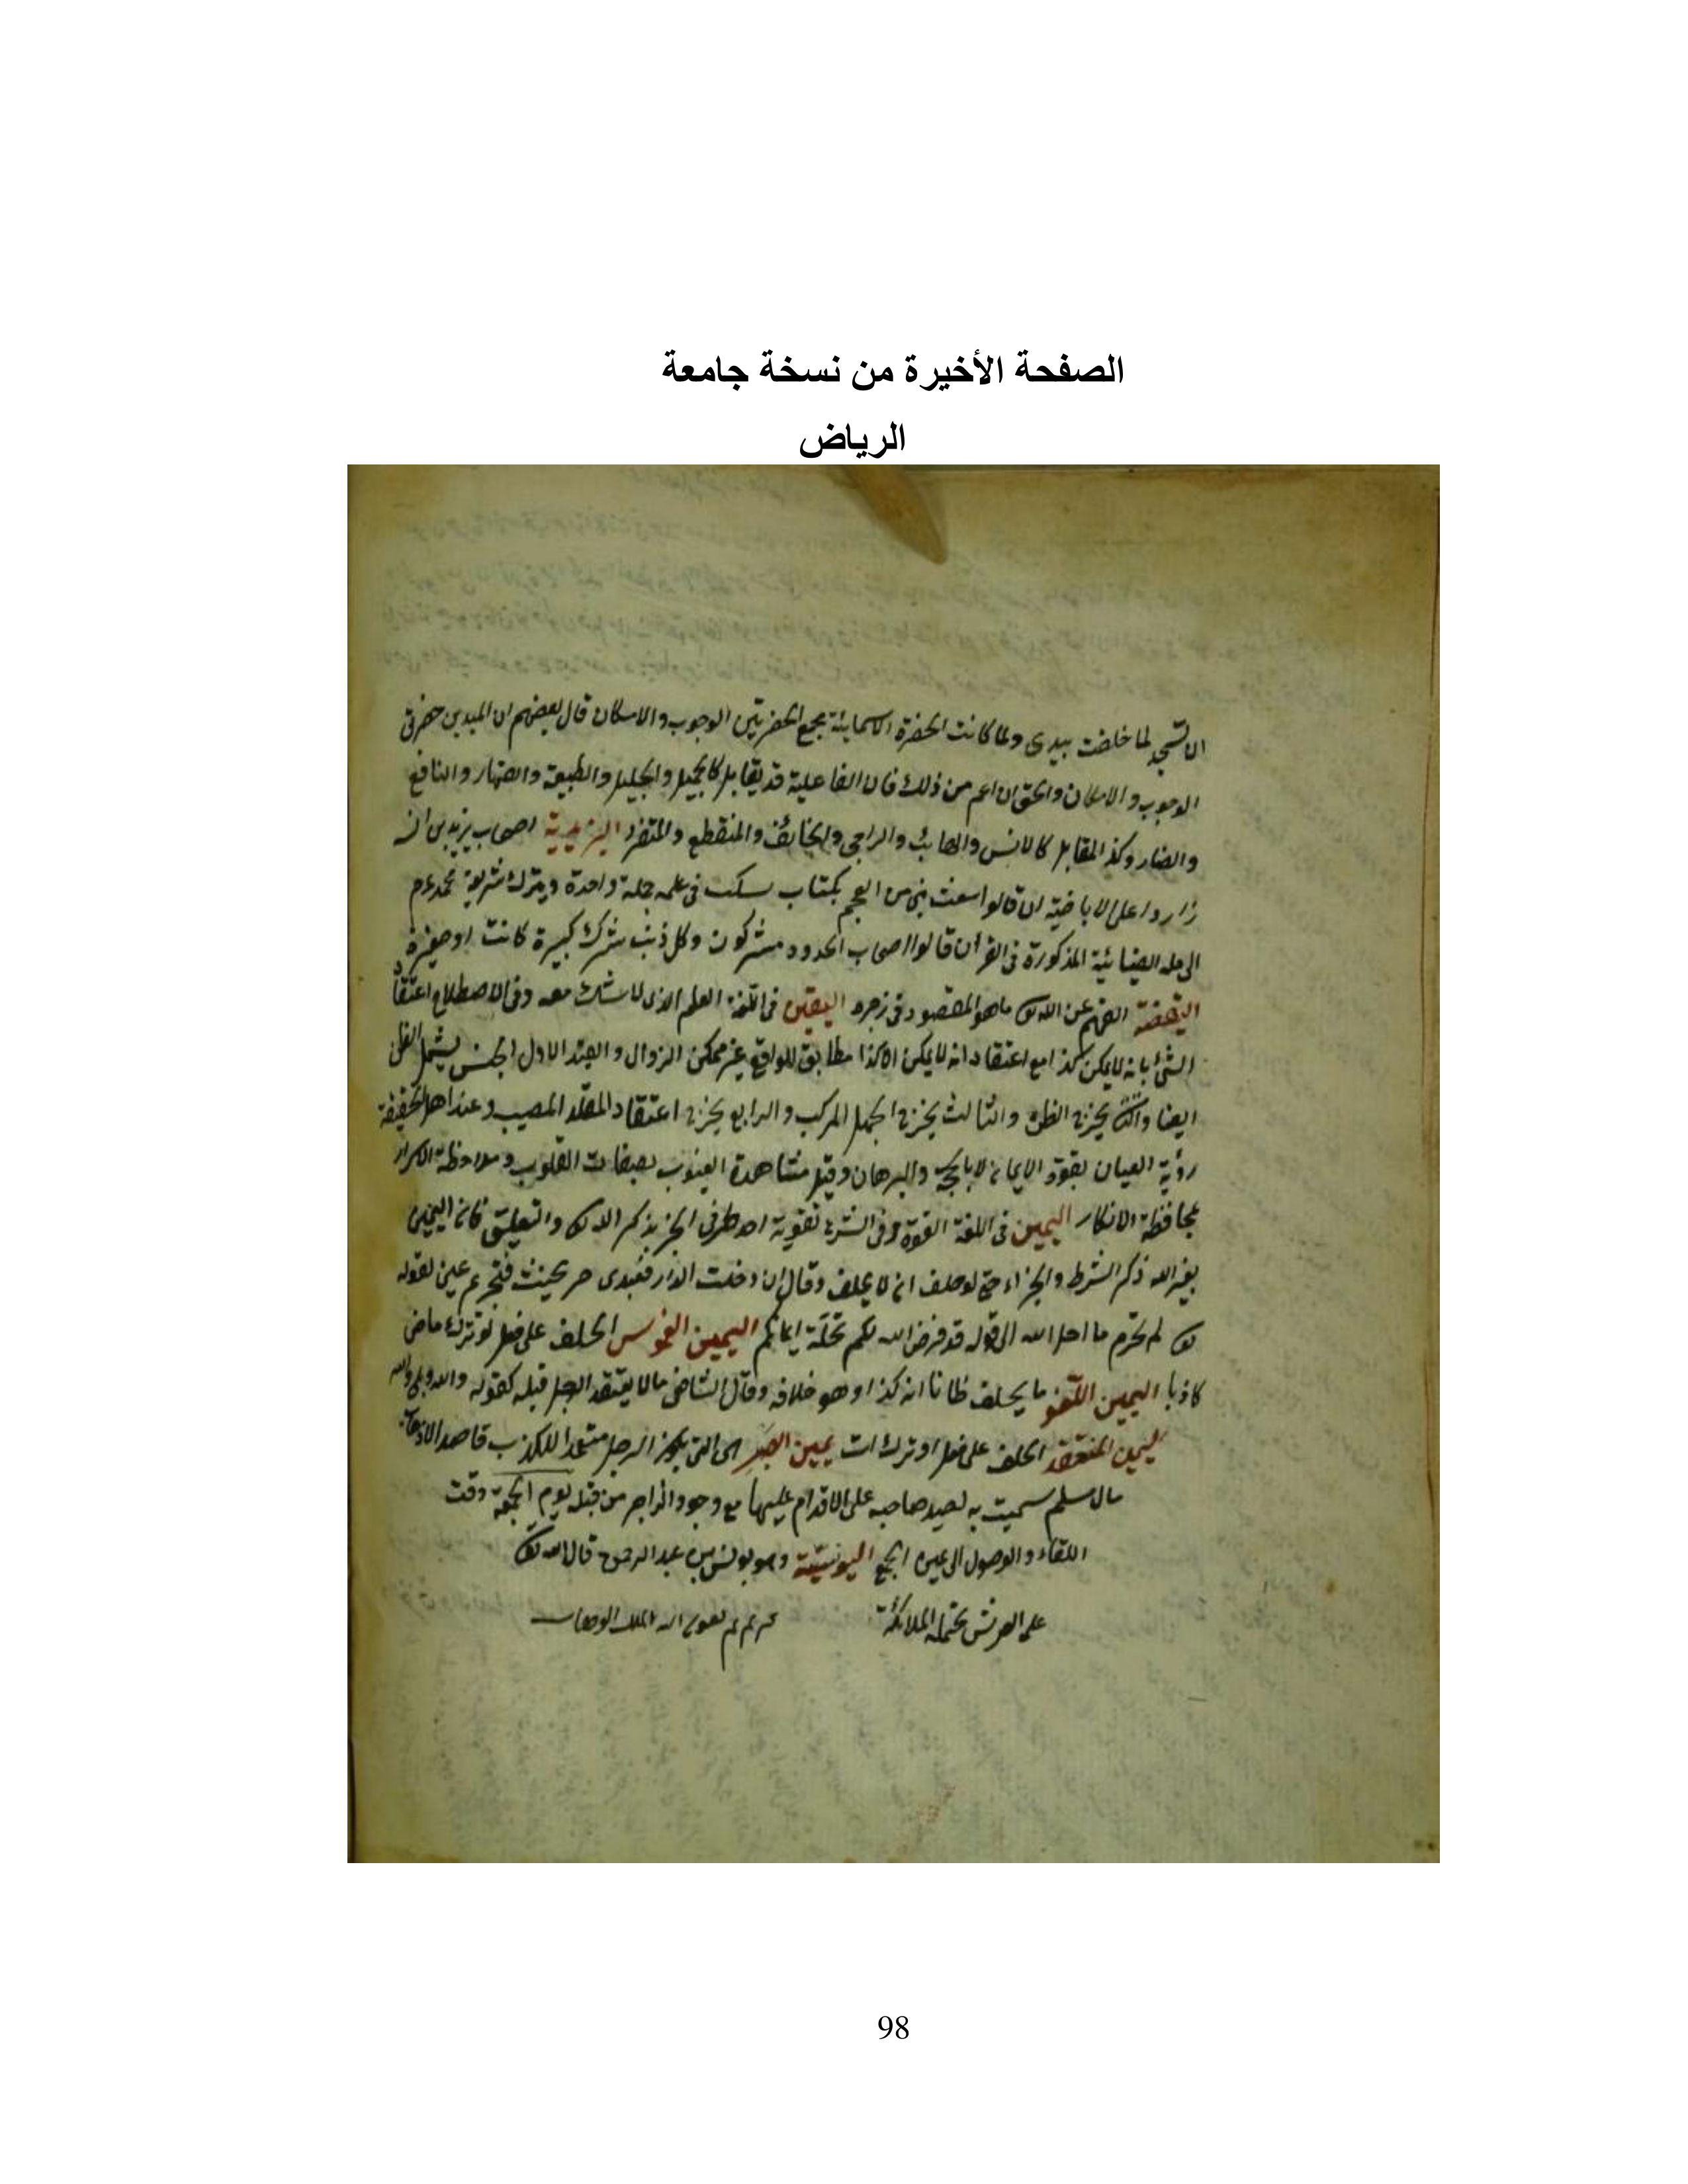 الصفحة الأخيرة من نسخة جامعة
الرياض
ان تسجد لما خلقت بيدى ولما كانت الحضرة الاسمائية مجمع الحضرتين الوجوب والامكان قال بعضهم ان اليدين حضرتى
الوجوب والامكان والحق ان اعم من ذلك فان الفاعلية قد يتقابل كالجميل والجليل والطيف والقهار والنافع
والضار وكذا المقابل كالانس والهائب والراجى والخائف والمنقطع والمتفرد اليزيدية اصحاب يزيد بن انيسه
زاروا على الاباضية ان قالوا سعث نبى من العجم بكتاب سكتب فى جملة واحدة ويترك شريعة محمد عم
الى مله الصابئية المذكورة فى القرأن قالوا اصحاب الحدود مشركون وكل ذنب شرك كبيرة كانت او صغيرة
اليقضة الفهم عن الله تع ما هو المقصود فى زجره اليقين فى اللغة العلم الذى لا شك معه وفى الاصطلاح اعتقاد
الشئ بانه لا يمكن كذا مع اعتقاد انه لا يمكن الا كذا مطابق للواقع غير ممكن الزوال والقيد الاول الجنس يشمل الظن
ايضا والثانى يخرج الظن والثالث يخرج الجهل المركب والرابع يخرج اعتقاد المقلد المصيب وعند اهل الحقيقة
رؤية العيان بقوة الايمان لا بالحجة والبرهان وقيل مشاهدة الغيوب بصفات القلوب وملاحظة الاسرار
بمحافظة الافكار اليمين فى اللغة القوة وفى الشرع تقوية احد طرفى الخبر بذكر الله تع والتعليق فان اليمين
بغير الله ذكر الشرط والجزاء حتى لو حلف ان لا يحلف وقال ان دخلت الدار فعبدى حر يحنث فتحريم يمين لقوله
تع لم تحرم ما احل الله الى قوله قد فرض الله لكم تحلة ايمانكم اليمين الغموس الحلف على فعل او ترك ماض
كاذبا اليمين اللغو ما يحلف ظانا انه كذا وهو خلافه وقال الشافعى مالا يعتقد الرجل قبله كقوله لا والله وبلى والله
اليمين المنعقد الحلف على فعل او ترك ات يمين الصبر هى التى يكون الرجل متعمدا للكذب قاصدا لاذهاب
مال مسلم سميت به لصبر صاحبه على الاقدام عليها مع وجود الزواجر من قبله يوم الجمعة وقت
اللقاء والوصول الى عين الجمع اليونسية وهو يونس بن عبد الرحمن قال الله تع
على العرش تحمله الملائكة تم بعون الله الملك الوهاب
98